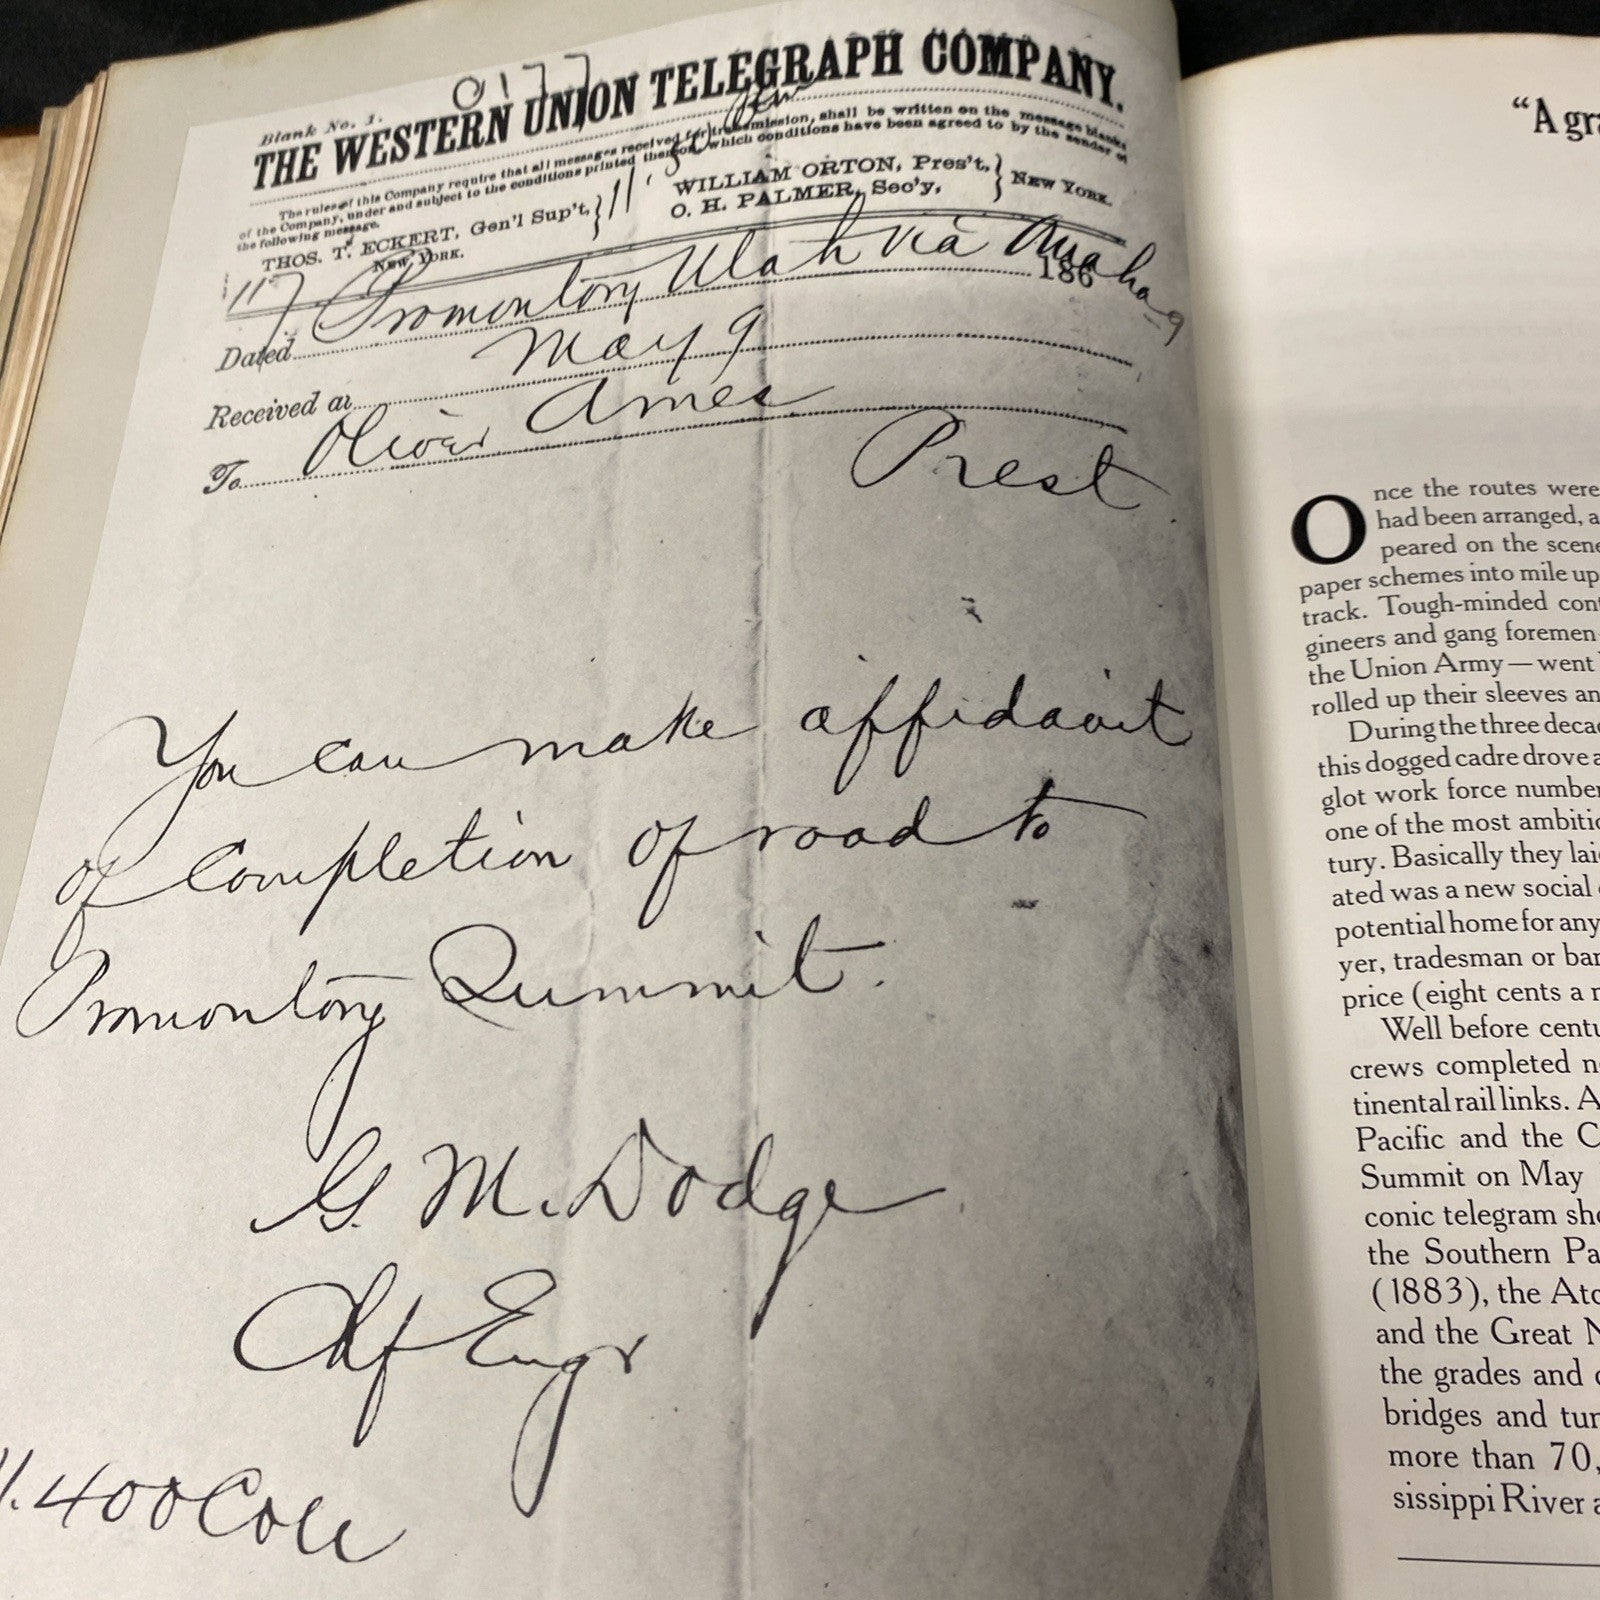 Blank No. 1.
THE WESTERN UNION TELEGRAPH COMPANY.
The rules of this Company require that all messages received for transmission, shall be written on the message blanks
of the Company, under and subject to the conditions printed thereon, which conditions have been agreed to by the sender of
the following message.
THOS. T. ECKERT, Gen'l Sup't,
NEW YORK.
WILLIAM ORTON, Pres't,
O. H. PALMER, Sec'y,
NEW YORK.
117
Dated Promontory Utah via Omaha 1869
Received at May 9
To Oliver Ames
Prest
You can make affidavit
of Completion of road to
Promontory Summit.
G. M. Dodge
Chf Engr
"A gra
Once the routes were
had been arranged, a
peared on the scene
paper schemes into mile up
track. Tough-minded cont
gineers and gang foremen
the Union Army — went
rolled up their sleeves an
During the three decad
this dogged cadre drove a
glot work force number
one of the most ambitio
tury. Basically they laid
ated was a new social
potential home for any
yer, tradesman or bar
price (eight cents a m
Well before centu
crews completed n
tinental rail links. A
Pacific and the C
Summit on May
conic telegram sho
the Southern Pa
(1883), the Atc
and the Great N
the grades and
bridges and tun
more than 70,
sissippi River a